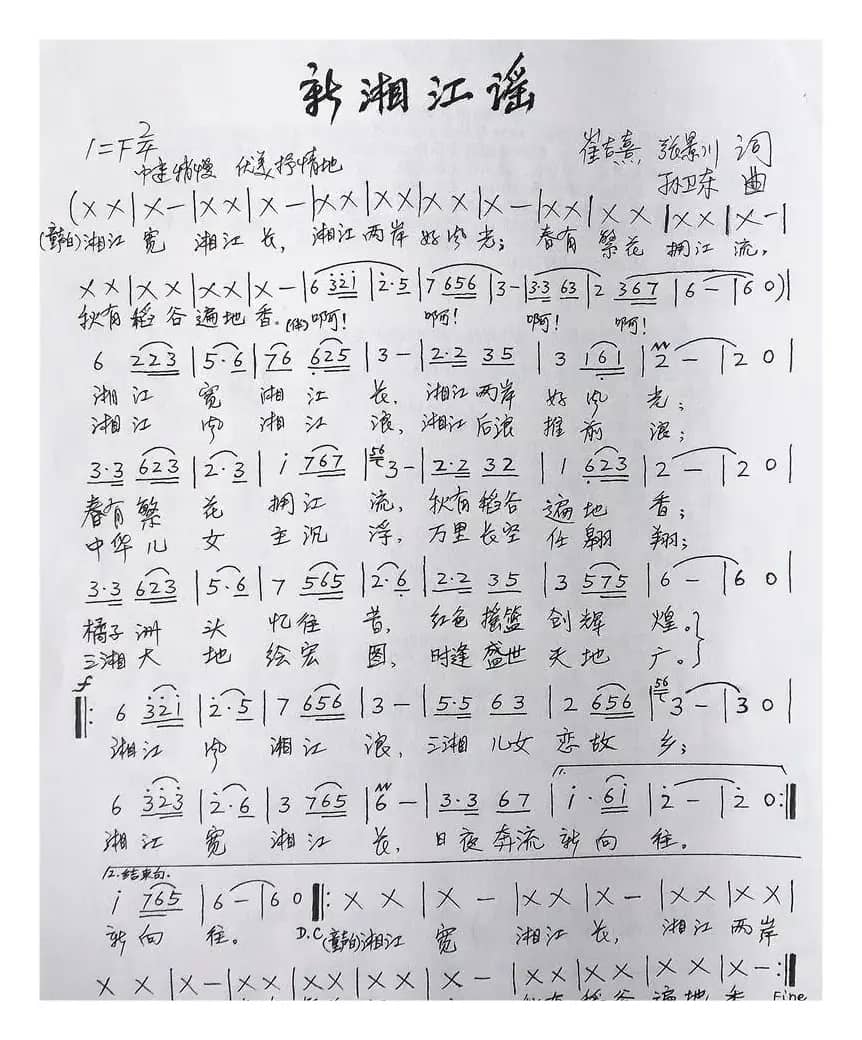 新湘江谣
1=F 2/4
中速稍慢 优美抒情地
崔吉熹, 张景川 词
孙卫东 曲
(X X | X — | X X | X — | X X | X X | X X | X — | X X | X X | X X | X — |
(童声白)湘江 宽 湘江 长, 湘江 两岸 好风 光; 春有 繁花 拥江 流,
X X | X X | X X | X — | 6 321 | 2·5 | 7 656 | 3 — | 3·3 63 | 2 367 | 6 — | 6 0) |
秋有 稻谷 遍地 香. (伴)啊! 啊! 啊! 啊!
6 223 | 5·6 | 76 625 | 3 — | 2·2 35 | 3 161 | 2 — | 2 0 |
湘江 宽 湘江 长, 湘江两岸 好风 光;
湘江 风 湘江 浪, 湘江后浪 推前 浪;
3·3 623 | 2·3 | i 767 | 56 3 — | 2·2 32 | 1 623 | 2 — | 2 0 |
春有繁 花 拥江 流, 秋有稻谷 遍地 香;
中华儿 女 主沉 浮, 万里长空 任翱 翔;
3·3 623 | 5·6 | 7 565 | 2·6 | 2·2 35 | 3 575 | 6 — | 6 0 |
橘子洲 头 忆往 昔, 红色摇篮 创辉 煌。
三湘大 地 绘宏 图, 时逢盛世 天地 广。
f
‖: 6 321 | 2·5 | 7 656 | 3 — | 5·5 63 | 2 656 | 56 3 — | 3 0 |
湘江 风 湘江 浪, 三湘儿女 恋故 乡;
6 323 | 2·6 | 3 765 | 6 — | 3·3 67 | i·6i | 2 — | 2 0 :‖
湘江 宽 湘江 长, 日夜奔流 新向 往。
2.结束句.
i 765 | 6 — | 6 0 ‖: X X | X — | X X | X — | X X | X X |
新向 往。 D.C (童声白)湘江 宽 湘江 长, 湘江 两岸
X X | X — | X X | X X | X X | X — | X X | X X | X X | X — :‖
稻谷 遍地 香 Fine